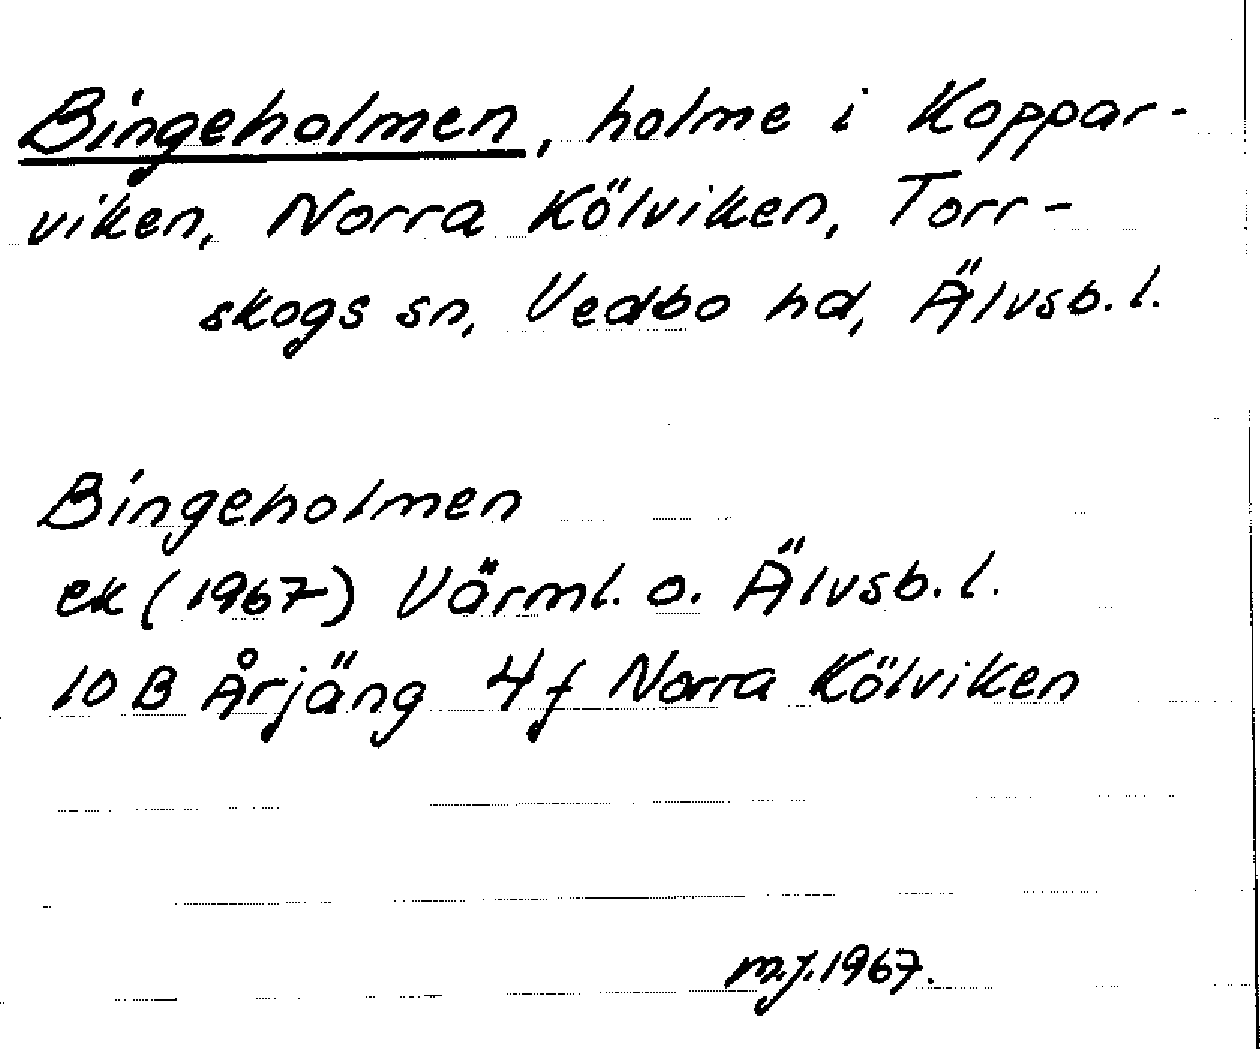 Bingeholmen, holme i Koppar-
viken, Norra Kölviken, Torr-
skogs sn, Vedbo hd, Älvsb. l.
Bingeholmen
ek (1967) Värml. o. Älvsb. l.
10 B Årjäng 4f Norra Kölviken
m.j. 1967.